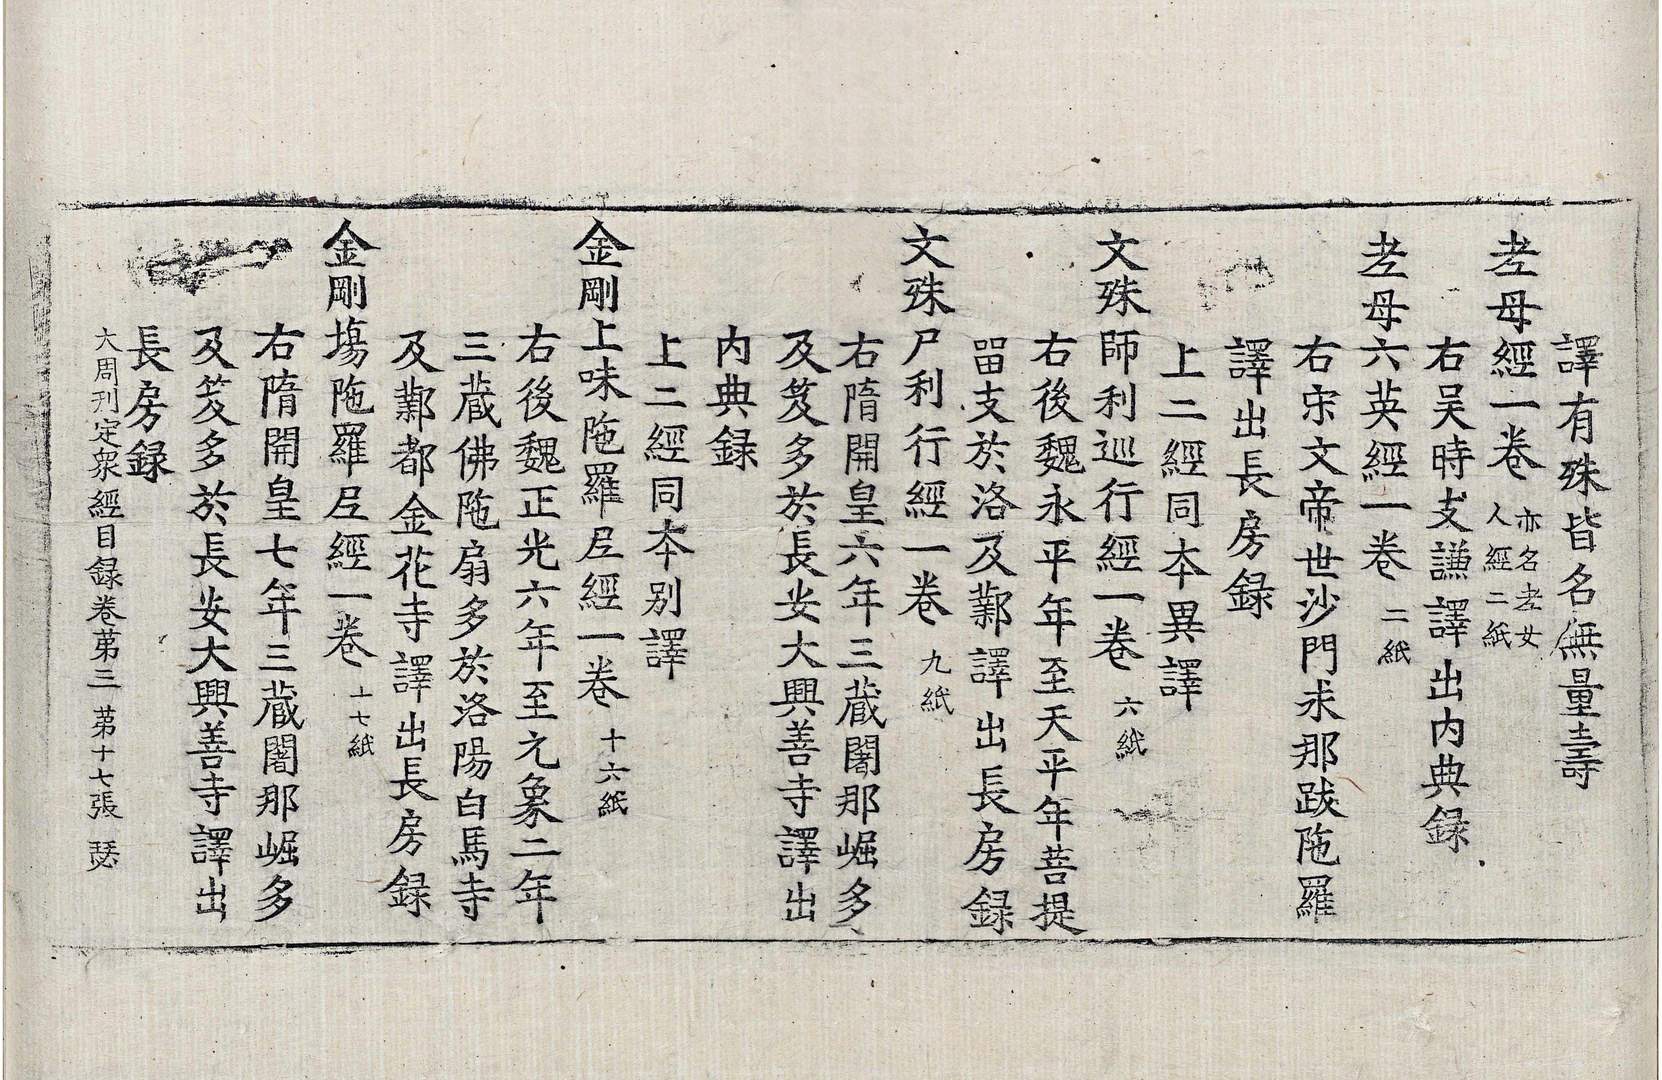 譯有殊皆名無量壽
老母經一卷 亦名老女人經二紙
右吳時支謙譯出内典録
老母六英經一卷 二紙
右宋文帝世沙門求那跋陁羅
譯出長房録
上二經同本異譯
文殊師利巡行經一卷 六紙
右後魏永平年至天平年菩提
留支於洛及鄴譯出長房録
文殊尸利行經一卷 九紙
右隋開皇六年三藏闍那崛多
及笈多於長安大興善寺譯出
内典録
上二經同本别譯
金剛上味陁羅尼經一卷 十六紙
右後魏正光六年至元象二年
三藏佛陁扇多於洛陽白馬寺
及鄴都金花寺譯出長房録
金剛塲陁羅尼經一卷 十七紙
右隋開皇七年三藏闍那崛多
及笈多於長安大興善寺譯出
長房録
大周刊定衆經目録卷第三 第十七張 瑟